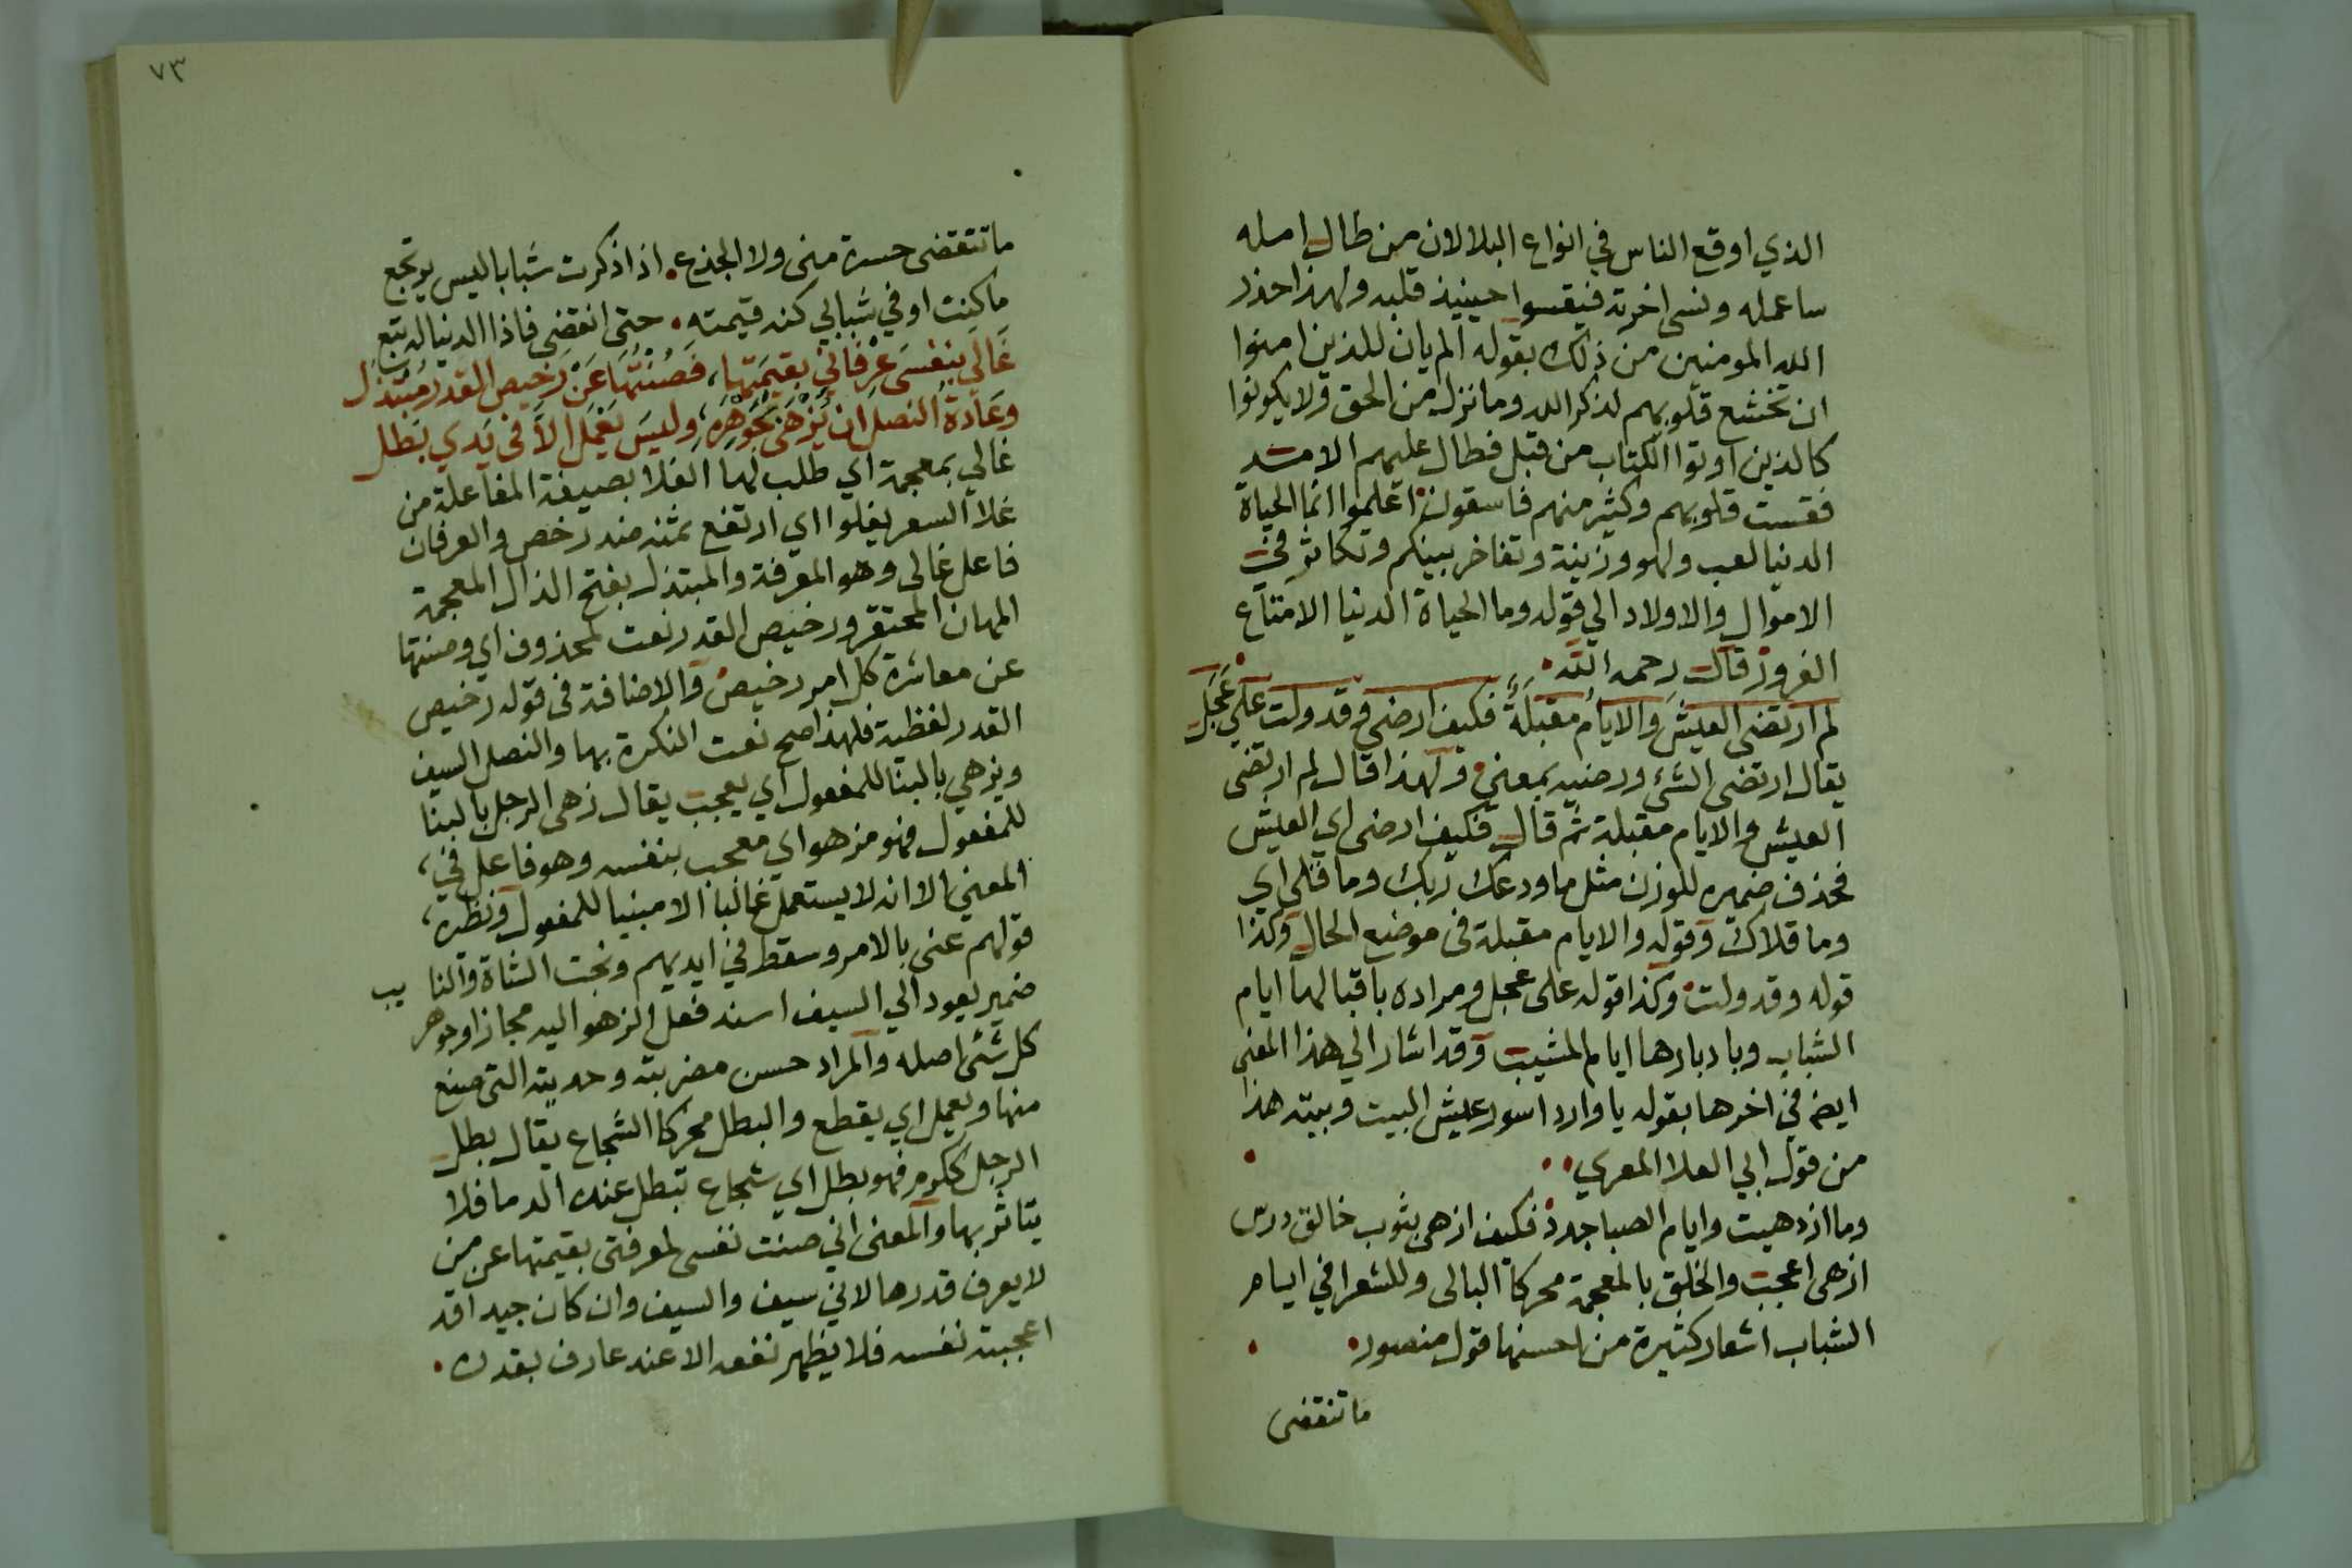 الذي اوقع الناس في انواع البلا لان من طال امله
ساعمله ونسى اخرته فيقسوا حينيذ قلبه ولهذا حذر
الله المومنين من ذلك بقوله الم يان للذين امنوا
ان تخشع قلوبهم لذكر الله وما نزل من الحق ولا يكونوا
كالذين اوتوا الكتاب من قبل فطال عليهم الامد
فقست قلوبهم وكثير منهم فاسقون اعلموا انما الحياة
الدنيا لعب ولهو وزينة وتفاخر بينكم وتكاثر في
الاموال والاولاد الي قوله وما الحياة الدنيا الا متاع
الغرور قال رحمه الله
لم ارتضى العيش والايام مقبلة فكيف ارضى وقد ولت علي عجل
يقال ارتضى الشئ ورضيه بمعني ولهذا قال لم ارتضى
العيش والايام مقبلة ثم قال فكيف ارضى اي العيش
فحذف ضميره للوزن مثل ما ودعك ربك وما قلى اي
وما قلاك وقوله والايام مقبلة في موضع الحال وكذا
قوله وقد ولت وكذا قوله على عجل ومراده باقبالها ايام
الشباب وبادبارها ايام المشيب وقد اشار الي هذا المعنى
ايضا في اخرها بقوله يا واردا سور عيش البيت وبيته هذا
من قول ابي العلا المعري
وما ازدهيت وايام الصبا جدد فكيف ازهي بثوب خالق درس
ازهى اعجب والخلق بالمعجمة محركا البالى وللشعرا في ايام
الشباب اشعار كثيرة من احسنها قول منصور
ما تنقضى
٧٣
ما تنقضى حسرة منى ولا الجذع اذا ذكرت شبابا ليس يرتجع
ما كنت اوفي شبابي كنه قيمته حتى انقضي فاذا الدنيا له تبع
غالي بنفسي عرفاني بقيمتها، فصنتها عن رخيص القدر مبتذل
وعادة النصل ان يزهى بجوهره، وليس يعمل الا في يدي بطل
غالي بمعجمة اي طلب لها الغلا بصيغة المفاعلة من
غلا السعر يغلوا اي ارتفع ثمنه ضد رخص والعرفان
فاعل غالى وهو المعرفة والمبتذل بفتح الذال المعجمة
المهان المحتقر ورخيص القدر نعت لمحذوف اي وصنتها
عن معاشرة كل امر رخيص والاضافة في قوله رخيص
القدر لفظية فلهذا صح نعت النكرة بها والنصل السيف
ويزهي بالبنا للمفعول اي يعجب يقال زهى الرجل بالبنا
للمفعول فهو مزهو اي معجب بنفسه وهو فاعل في،
المعنى الا انه لا يستعمل غالبا الا مبنيا للمفعول ونظيره،
قولهم عنى بالامر وسقط في ايديهم ونجت الشاة والنايب
ضمير يعود الي السيف اسند فعل الزهو اليه مجازا وجوهر
كل شئى اصله والمراد حسن مضربته وحديته التى صنع
منها ويعمل اي يقطع والبطل محركا الشجاع يقال بطل
الرجل ككرم فهو بطل اي شجاع تبطل عنده الدما فلا
يتاثر بها والمعنى انى صنت نفسى لمعرفتى بقيمتها عن من
لا يعرف قدرها لاني سيف والسيف وان كان جيدا قد
اعجبته نفسه فلا يظهر نفعه الا عند عارف بقدره